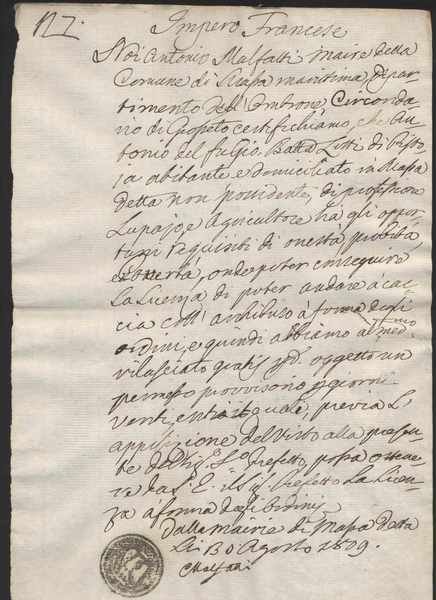 N 7.
Impero Francese
Noi Antonio Malfatti Maire della
Comune di Massa marittima, Dipar-
timento dell'Ombrone, Circonda-
rio di Grosseto certifichiamo, che An-
tonio del fu Gio. Batta Litti di Pisto-
ja abitante e domiciliato in Massa
detta non possidente, di professione
Lupajo e Agricoltore ha gli oppor-
tuni requisiti di onestà, probità,
onde poter conseguire
La Licenza di poter andare a cac-
cia coll' archibuso à forma degli
ordini, e quindi abbiamo al med.mo
rilasciato gratis oggetto un
permesso provvisorio giorni
venti, entro quali, previa L'
apposizione del Visto alla presen-
te del Sig.
Prefetto, possa ottene-
re da S. E. il Sig. Prefetto La Licen-
za à forma degli ordini
Dalla Mairie di Massa detta
Li 30 Agosto 1809.
Malfatti